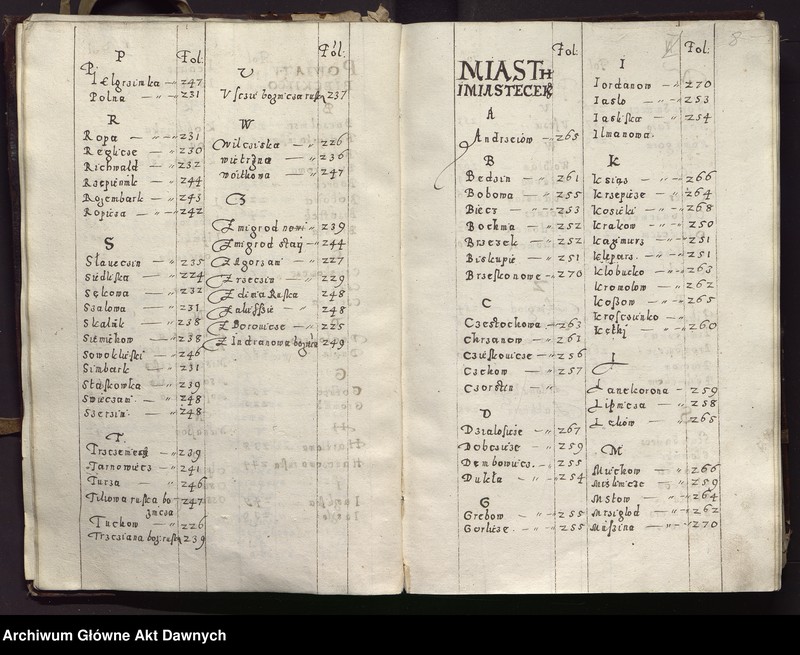 P Fol:
Pielgrzimka — 247
Polna — „ — 231
R
Ropa — „ — „ 231
Reglicze — „ 230
Richwald — „ 232
Rzepiennik — „ 244
Rozembark — „ 243
Ropicza — „ 242
S
Slawecin — „ 235
Siedliska — „ 224
Sękowa — „ 232
Szalowa — „ 231
Skalnik — „ 238
Siemichow — „ 238
Sowokleski — „ 246
Simbark — „ 231
Staskowka — „ 239
Swiecani — „ 248
Szerzin — „ 248
T
Trzcienicza — „ 239
Tarnowiecz — „ 241
Tursa — „ 246
Tiliowa ruska bo- „ 247
znicza
Tuchow — „ 226
Trzciana boz: ruska 239
Fol:
V
Vscie boznicza ruska 237
W
Wilcziska — „ 226
Wietrzna — „ 236
Woitkowa — „ 247
Z
Zmigrod nowi — „ 239
Zmigrod stary — „ 244
Zagorzani — „ 227
Zrzecin — „ 229
Zdinia Ruska 248
Zalussie — „ 248
Zborowicze — „ 225
Zindranowa boznica 249
8
Fol:
MIASTH
I MIASTECEK
A
Andrzeiow — „ 265
B
Bedzin — „ 261
Bobowa — „ 255
Biecz — „ 253
Bochnia — „ 252
Brzesek — „ 252
Biskupie — „ 251
Brzesko nowe — „ 270
C
Czestochowa — „ 263
Chrzanow — „ 261
Czieskowicze — „ 256
Czchow — „ 257
Czorstin — „
D
Dzialosicze — „ 267
Dobczicze — „ 259
Dembowiecz — „ 255
Dukla — „ 254
G
Grebow — „ — „ 255
Gorlicze — „ — „ 255
I Fol:
Iordanow — „ 270
Iaslo — „ — „ 253
Iasliska — „ 254
Ilmanowa
K
Ksias — „ — „ 266
Krzepicze — „ 264
Koszicki — „ 268
Krakow — „ 250
Kazimirz — „ 251
Klepars — „ 251
Klobucko — „ 263
Kromolow — „ 262
Kossow — „ 265
Kroscienko — „
Kętki — „ 260
L
Lanckorona — 259
Lipnicza — „ 258
Lelow — „ 265
M
Miechow — „ 266
Mislenicze — „ 259
Mstow — „ 264
Mrziglod — „ 262
Msszina — „ 270
Archiwum Główne Akt Dawnych